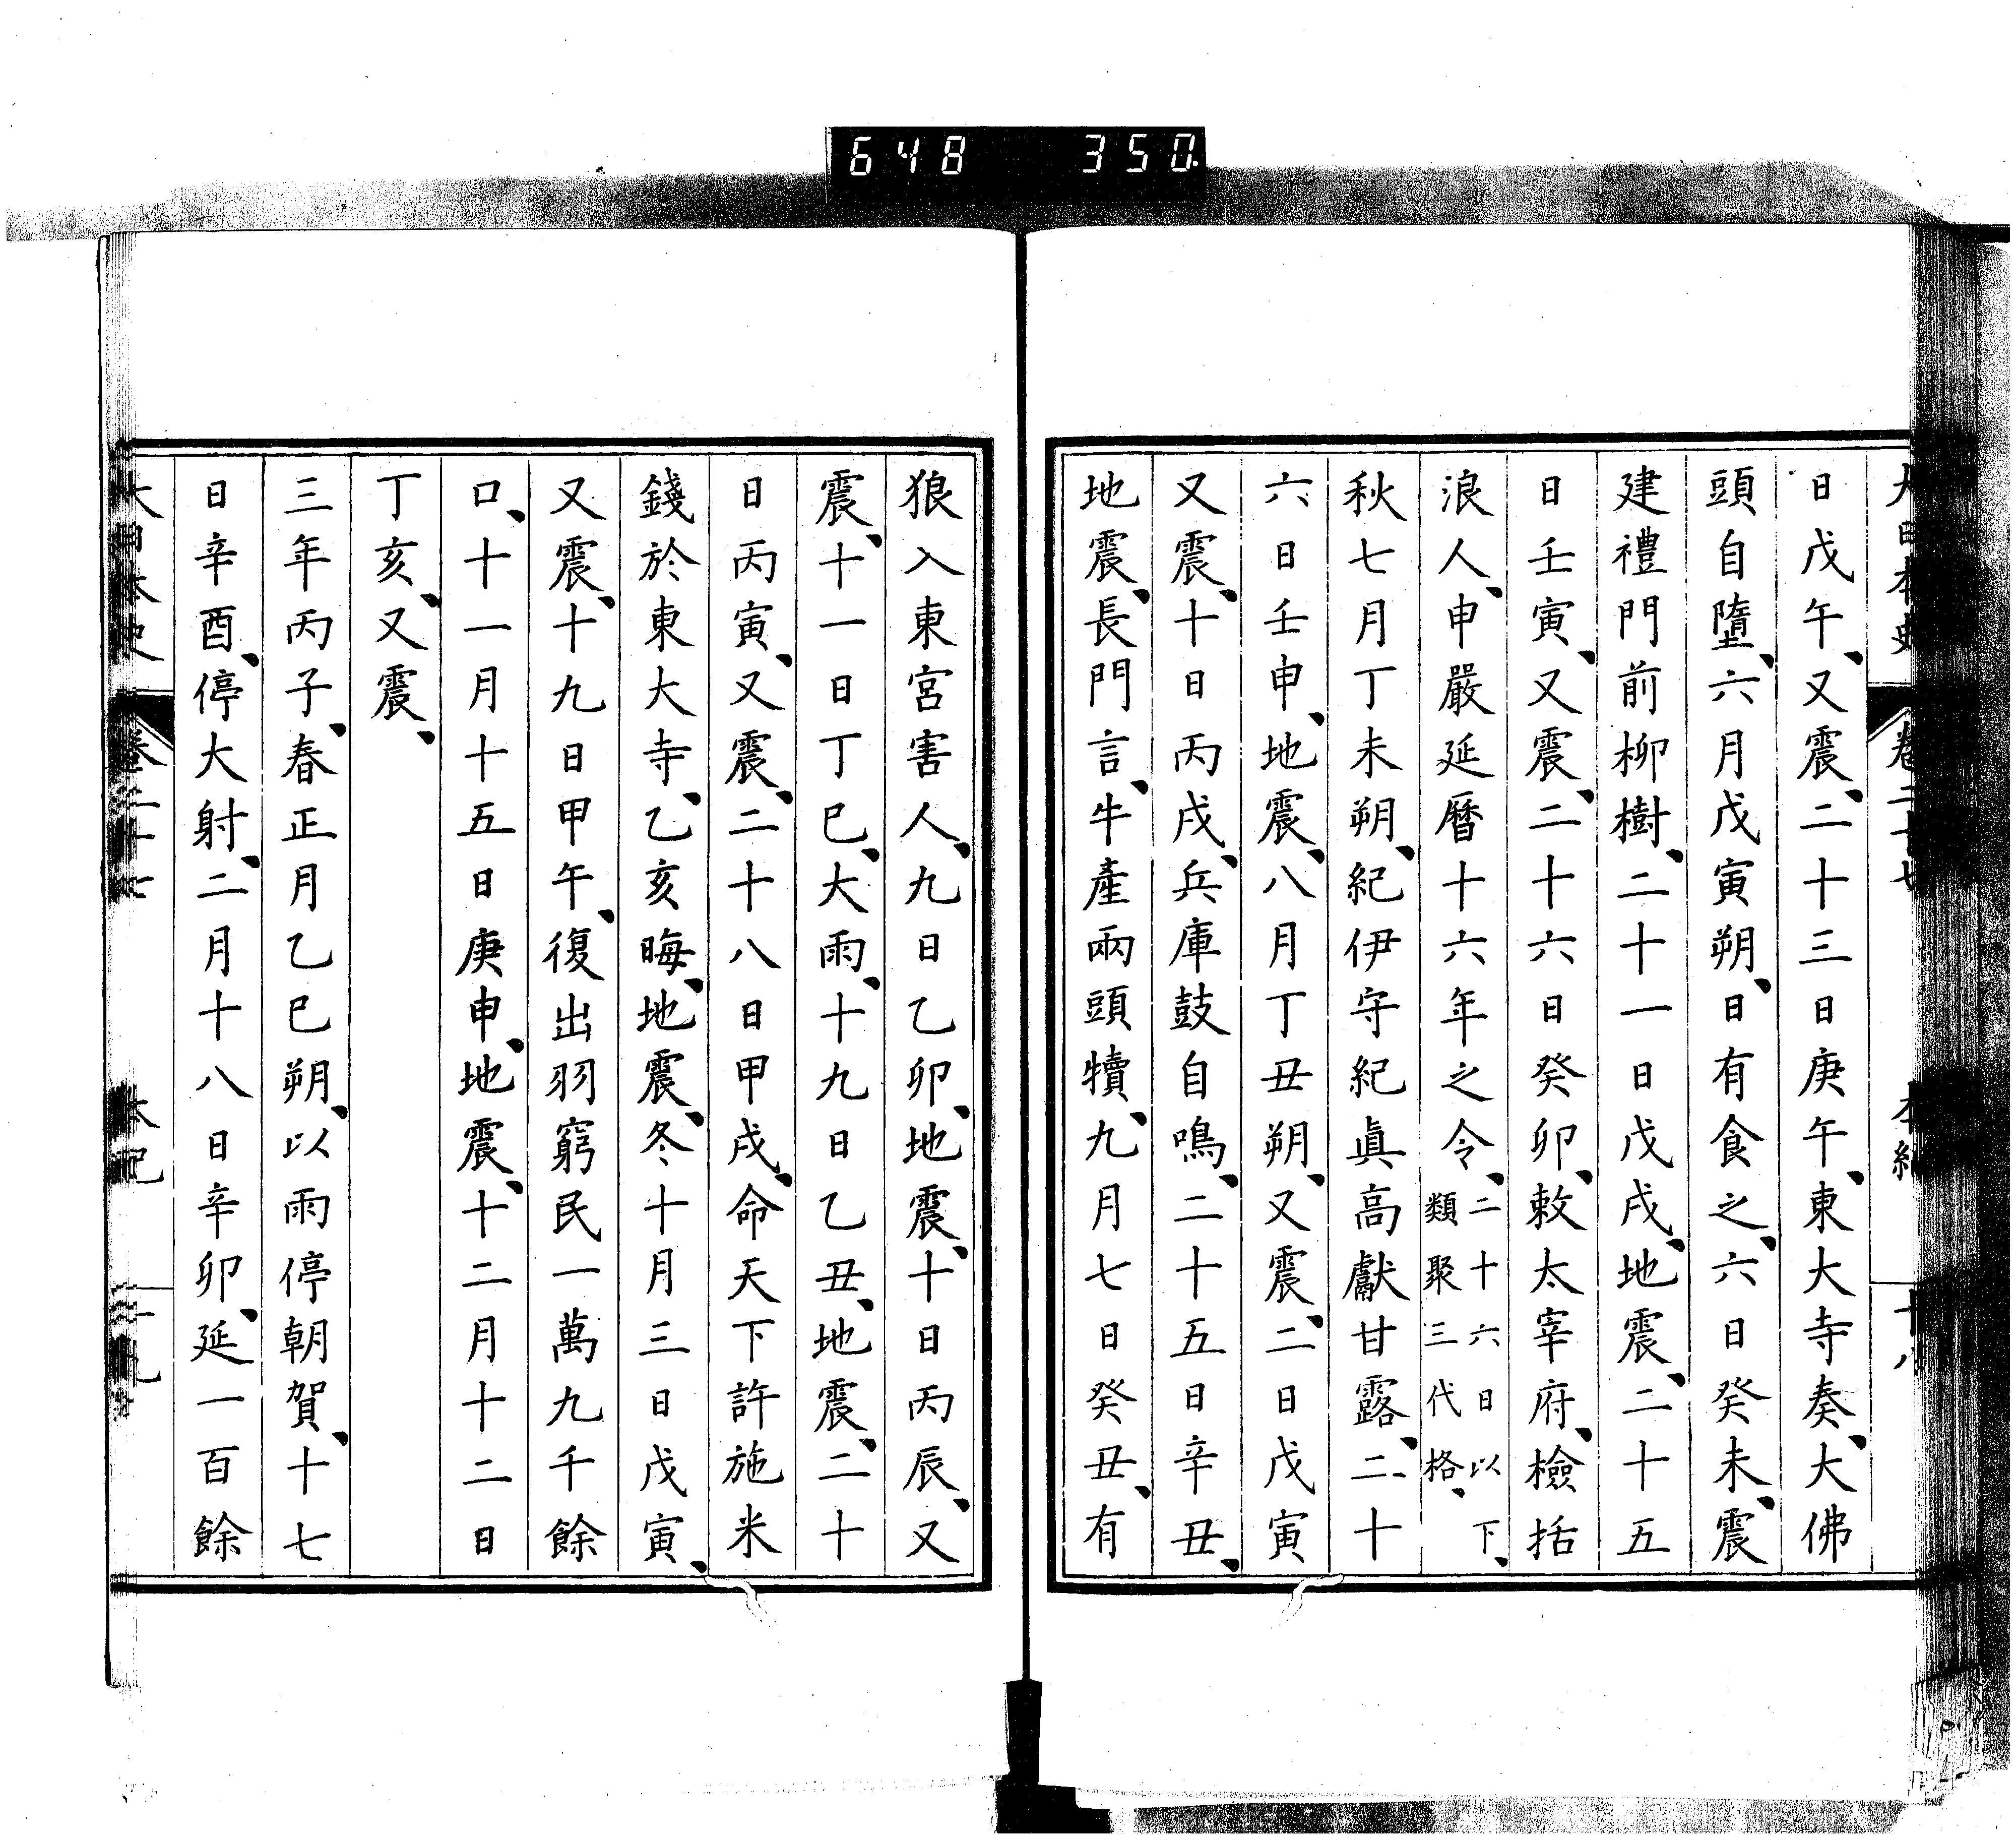 648 350
大日本史 卷二十七 本紀 十八
日戊午、又震、二十三日庚午、東大寺奏、大佛
頭自墮、六月戊寅朔、日有食之、六日癸未、震
建禮門前柳樹、二十一日戊戌、地震、二十五
日壬寅、又震、二十六日癸卯、敕太宰府、檢括
浪人、申嚴延曆十六年之令、二十六日以下、類聚三代格、
秋七月丁未朔、紀伊守紀眞高獻甘露、二十
六日壬申、地震、八月丁丑朔、又震、二日戊寅
又震、十日丙戌、兵庫鼓自鳴、二十五日辛丑、
地震、長門言、牛產兩頭犢、九月七日癸丑、有
狼入東宮害人、九日乙卯、地震、十日丙辰、又
震、十一日丁巳、大雨、十九日乙丑、地震、二十
日丙寅、又震、二十八日甲戌、命天下許施米
錢於東大寺、乙亥晦、地震、冬十月三日戊寅、
又震、十九日甲午、復出羽窮民一萬九千餘
口、十一月十五日庚申、地震、十二月十二日
丁亥、又震、
三年丙子、春正月乙巳朔、以雨停朝賀、十七
日辛酉、停大射、二月十八日辛卯、延一百餘
大日本史 卷二十七 本紀